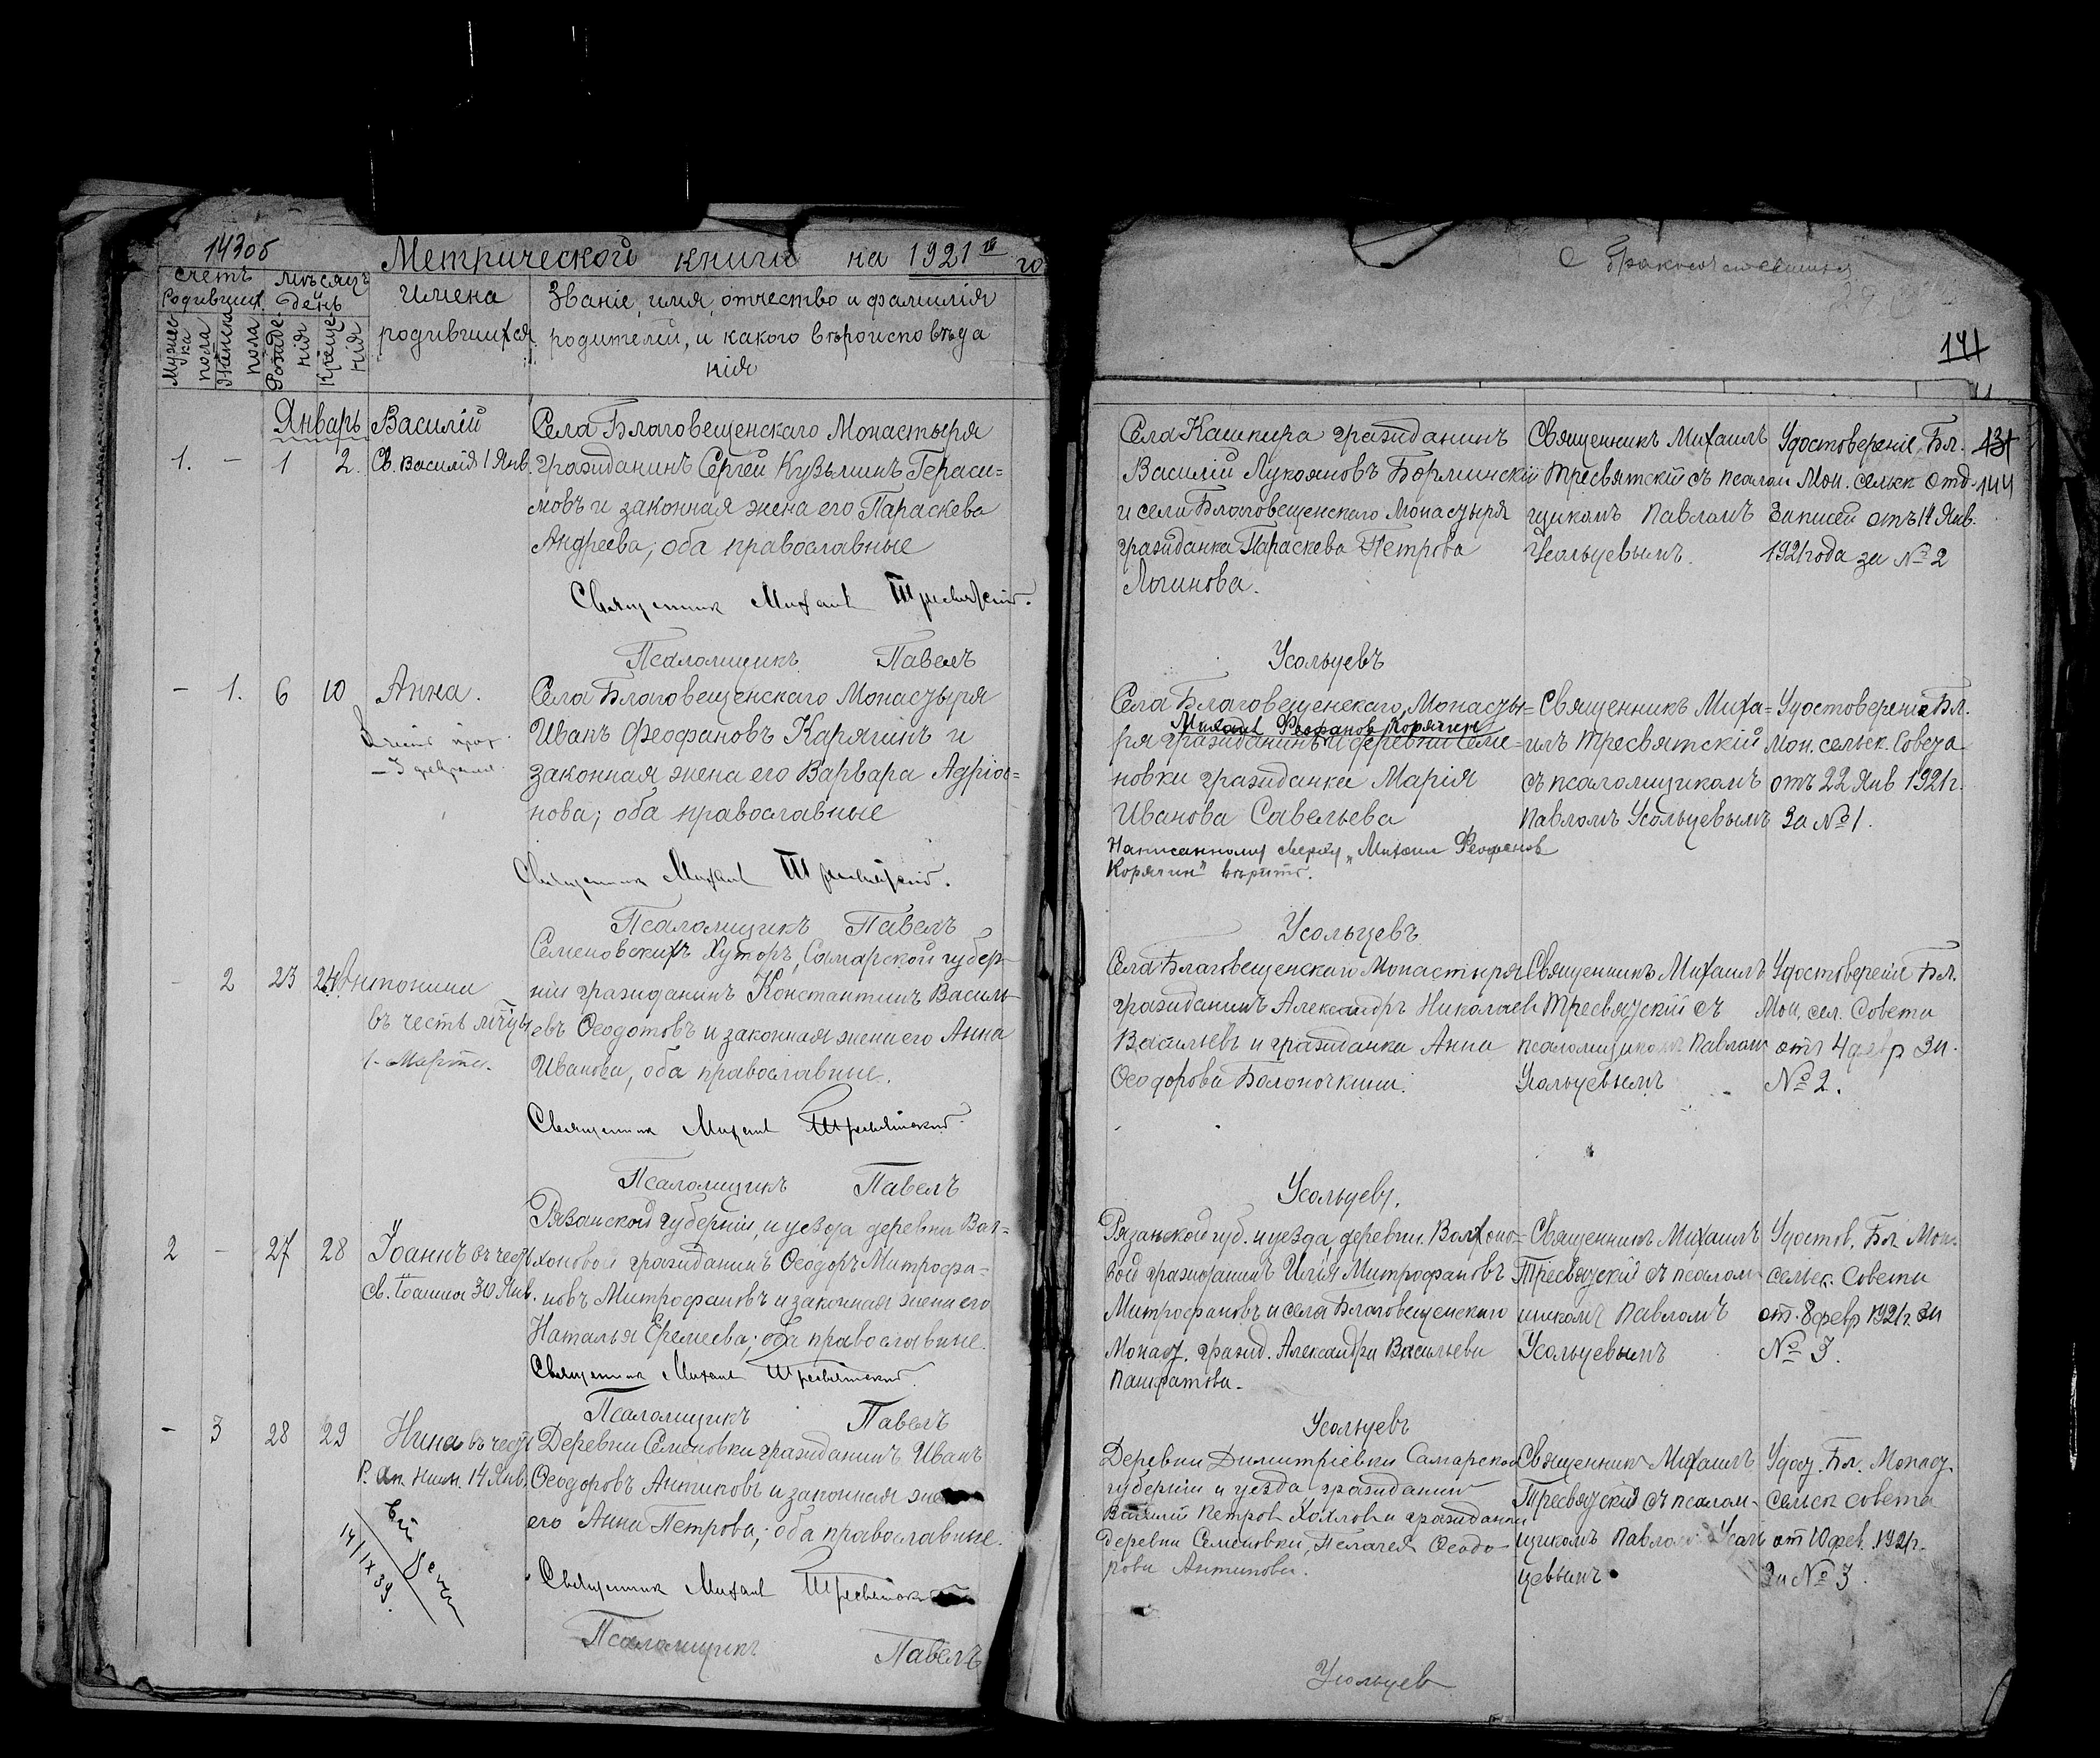 143об
Метрической книги на 1921 го
Счетъ родивших.
Мѣсяцъ и день
Мужеска пола
Женска пола
Рожденія
Крещенія
Имена
родившихся
Званіе, имя, отчество и фамилія
родителей, и какого вѣроисповѣда
нія
Январь
1. – 1 2.
Василій
Св. Василія 1 Янв.
Села Благовещенскаго Монастыря
гражданинъ Сергей Кузьминъ Гераси=
мовъ и законная жена его Параскева
Андреева; оба православные
Священник Михаил Тресвятский.
Псаломщикъ Павелъ
– 1. 6 10
Анна.
3 февраля
Села Благовещенскаго Монастыря
Иванъ Феофановъ Карягинъ и
законная жена его Варвара Адріа=
нова; оба православные
Священник Михаил Тресвятский.
Псаломщикъ Павелъ
– 2 23 24
Антонина
въ честь мчцы
1 Марта.
Семеновскихъ Хуторъ, Самарской губер
ніи гражданинъ Константинъ Василь
евъ Ѳеодотовъ и законная жена его Анна
Иванова, оба православные.
Священник Михаил Тресвятский.
Псаломщикъ Павелъ
2 – 27 28
Іоаннъ въ честь
Св. Іоанна 30 Янв.
Рязанской губерніи, и уезда деревни Вол=
хоновой гражданинъ Ѳеодоръ Митрофа=
новъ Митрофановъ и законная жена его
Наталья Еремеева; оба православные.
Священник Михаил Тресвятский.
Псаломщикъ Павелъ
– 3 28 29
Нина въ честь
Р. Ап. Нины. 14 Янв.
14/IX 39.
Деревни Семеновки гражданинъ Иванъ
Ѳеодоровъ Антиповъ и законная жена
его Анна Петрова; оба православные.
Священник Михаил Тресвятский
Псаломщикъ Павелъ
141
131
144
Села Кашкира гражданинъ
Василій Лукояновъ Борминскій
и села Благовещенскаго Монастыря
гражданка Параскева Петрова
Логинова.
Священникъ Михаилъ
Тресвятскій съ псалом
щикомъ Павломъ
Усольцевымъ.
Удостовереніе Бл.
Мон. сельск Отд.
Записей отъ 14 Янв.
1921 года за № 2
Усольцевъ
Села Благовещенскаго, Монасты=
Михаил Феофанов Корягин
ря гражданинъ и деревни Семе=
новки гражданка Марія
Иванова Савельева
Написанному сверху „Михаил Феофанов
Корягин" верить.
Священникъ Миха=
илъ Тресвятскій
съ псаломщикомъ
Павломъ Усольцевымъ
Удостовереніе Бл.
Мон. сельск. Совета
отъ 22 Янв 1921 г.
За № 1.
Усольцевъ
Села Благовещенскаго Монастыря
гражданинъ Александръ Николаев
Васильевъ и гражданка Анна
Ѳеодорова Болоночкина.
Священникъ Михаилъ
Тресвятскій съ
псаломщикомъ Павлом
Усольцевымъ
Удостовереніе Бл.
Мон. сел. Совета
отъ 4 февр За
№ 2.
Усольцевъ.
Рязанской губ. и уезда, деревни Волхоно=
вой гражданинъ Илія Митрофановъ
Митрофановъ и села Благовещенскаго
Монаст. гражд. Александра Васильева
Панкратова.
Священникъ Михаилъ
Тресвятскій съ псалом
щикомъ Павломъ
Усольцевымъ
Удостов. Бл. Мон.
сельск. Совета
от. 8 февр 1921 г. За
№ 3.
Усольцевъ
Деревни Димитріевки Самарской
губерніи и уезда гражданин
Василий Петров Хохлов и гражданка
деревни Семеновки, Пелагея Ѳеодо
рова Антипова.
Священникъ Михаилъ
Тресвятскій съ псалом-
щикомъ Павлом Усоль
цевымъ
Удост. Бл. Монаст.
Сельск совета
от 10 фев. 1921 г.
За № 3.
Усольцев